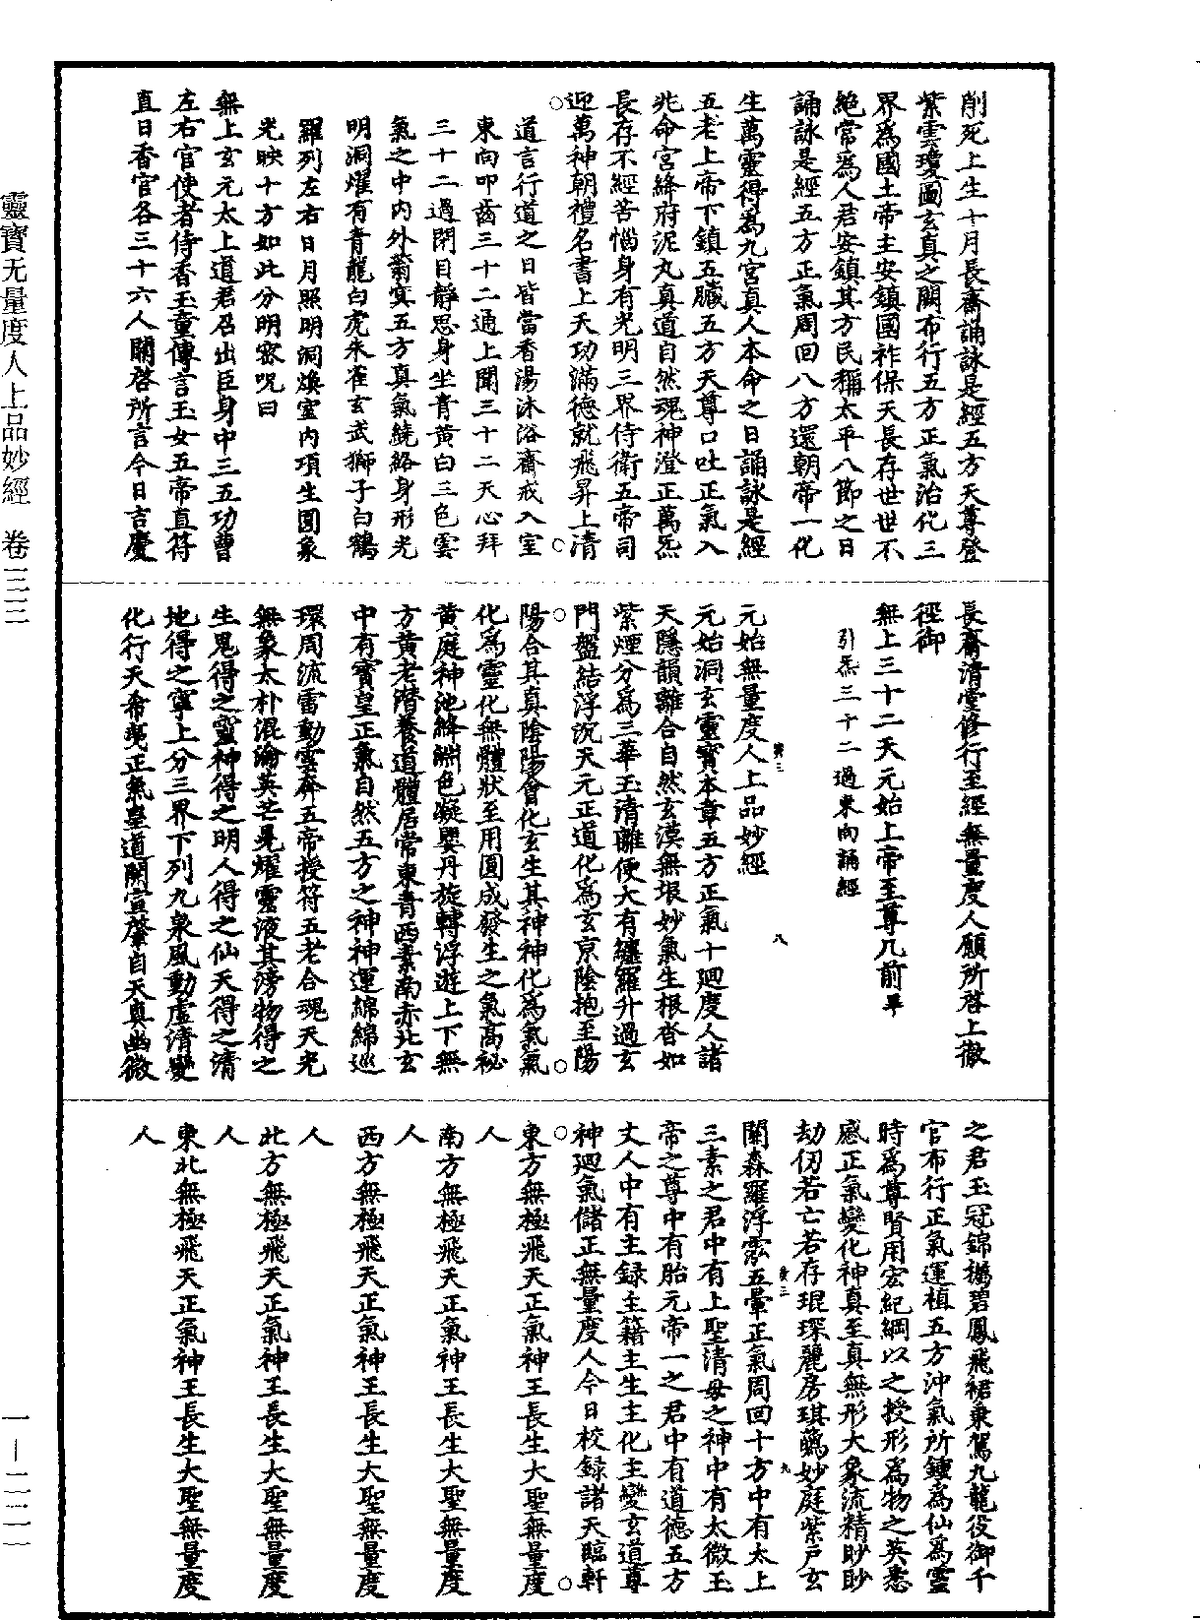 削死上生十月長齋誦詠是經五方天尊登
紫雲瓊圖玄真之闕布行五方正氣治化三
界爲國土帝主安鎮國祚保天長存世世不
絕常爲人君安鎮其方民稱太平八節之日
誦詠是經五方正氣周回八方還朝帝一化
生萬靈得爲九宮真人本命之日誦詠是經
五老上帝下鎮五臟五方天尊口吐正氣入
兆命宮絳府泥丸真道自然魂神澄正萬炁
長存不經苦惱身有光明三界侍衛五帝司
迎萬神朝禮名書上天功滿德就飛昇上清
道言行道之日皆當香湯沐浴齋戒入室
東向叩齒三十二通上聞三十二天心拜
三十二過閉目靜思身坐青黃白三色雲
氣之中內外蓊冥五方真氣繞絡身形光
明洞耀有青龍白虎朱雀玄武獅子白鶴
羅列左右日月照明洞煥室內項生圓象
光映十方如此分明密呪曰
無上玄元太上道君召出臣身中三五功曹
左右官使者侍香玉童傳言玉女五帝直符
直日香官各三十六人關啓所言今日言慶
長齋清堂修行至經無量度人願所啓上徹
徑御
無上三十二天元始上帝至尊几前畢
引炁三十二過東向誦經
元始無量度人上品妙經
元始洞玄靈寶本章五方正氣十迴度人諸
天隱韻離合自然玄漠無垠妙氣生根沓如
紫煙分爲三華玉清離便大有纏羅升過玄
門盤結浮沉天元正道化爲玄京陰抱至陽
陽合其真陰陽會化玄生其神神化爲氣氣
化爲靈化無體狀至用圓成發生之氣高祕
黃庭神池絳淵色凝嬰丹旋轉浮遊上下無
方黃老潜養道體居常東青西素南赤北玄
中有寶皇正氣自然五方之神神運綿綿巡
環周流雷動雲奔五帝授符五老合魂天光
無象太朴混淪英芒晃耀靈液其滂物得之
生鬼得之靈神得之明人得之仙天得之清
地得之寧上分三界下列九泉風動虛清變
化行天希夷正氣皇道闡宣肇自天真幽微
之君玉冠錦襦碧鳳飛裙乘駕九龍役御千
官布行正氣運植五方沖氣所鍾爲仙爲靈
時爲尊賢用宏紀綱以之授形爲物之英悉
感正氣變化神真至真無形大象流精眇眇
劫仞若亡若存琨琛麗房琪䕷妙庭紫戶玄
闌森羅浮泓五暈正氣周回十方中有太上
三素之君中有上聖清母之神中有太微玉
帝之尊中有胎元帝一之君中有道德五方
丈人中有主録主籍主生主化主變玄道尊
神迴氣儲正無量度人今日校録諸天臨軒
東方無極飛天正氣神王長生大聖無量度
人
南方無極飛天正氣神王長生大聖無量度
人
西方無極飛天正氣神王長生大聖無量度
人
北方無極飛天正氣神王長生大聖無量度
人
東北無極飛天正氣神王長生大聖無量度
人
靈寶无量度人上品妙經 卷三三
一—二二一